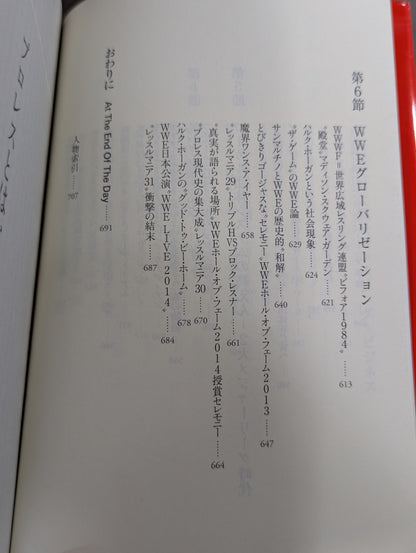 第6節　WWEグローバリゼーション
WWWF=世界広域レスリング連盟〝ビフォア1984〟……613
〝殿堂〟マディソン・スクウェア・ガーデン……621
ハルク・ホーガンという社会現象……624
〝ザ・ゲーム〟のWWE論……629
サンマルチノとWWEの歴史的〝和解〟……640
とびきりゴージャスな〝セレモニー〟WWEホール・オブ・フェーム2013……647
魔界ワンス・ア・イヤー……658
〝レッスルマニア29〟トリプルHVSブロック・レスナー……661
〝真実が語られる場所〟WWEホール・オブ・フェーム2014授賞セレモニー……664
プロレス現代史の集大成〝レッスルマニア30〟……670
ハルク・ホーガンの〝グッド・トゥ・ビー・ホーム〟……678
WWE日本公演〝WWE LIVE 2014〟……684
〝レッスルマニア31〟衝撃の結末……687
おわりに　At The End Of The Day……691
人物索引……707
プロレスとは、